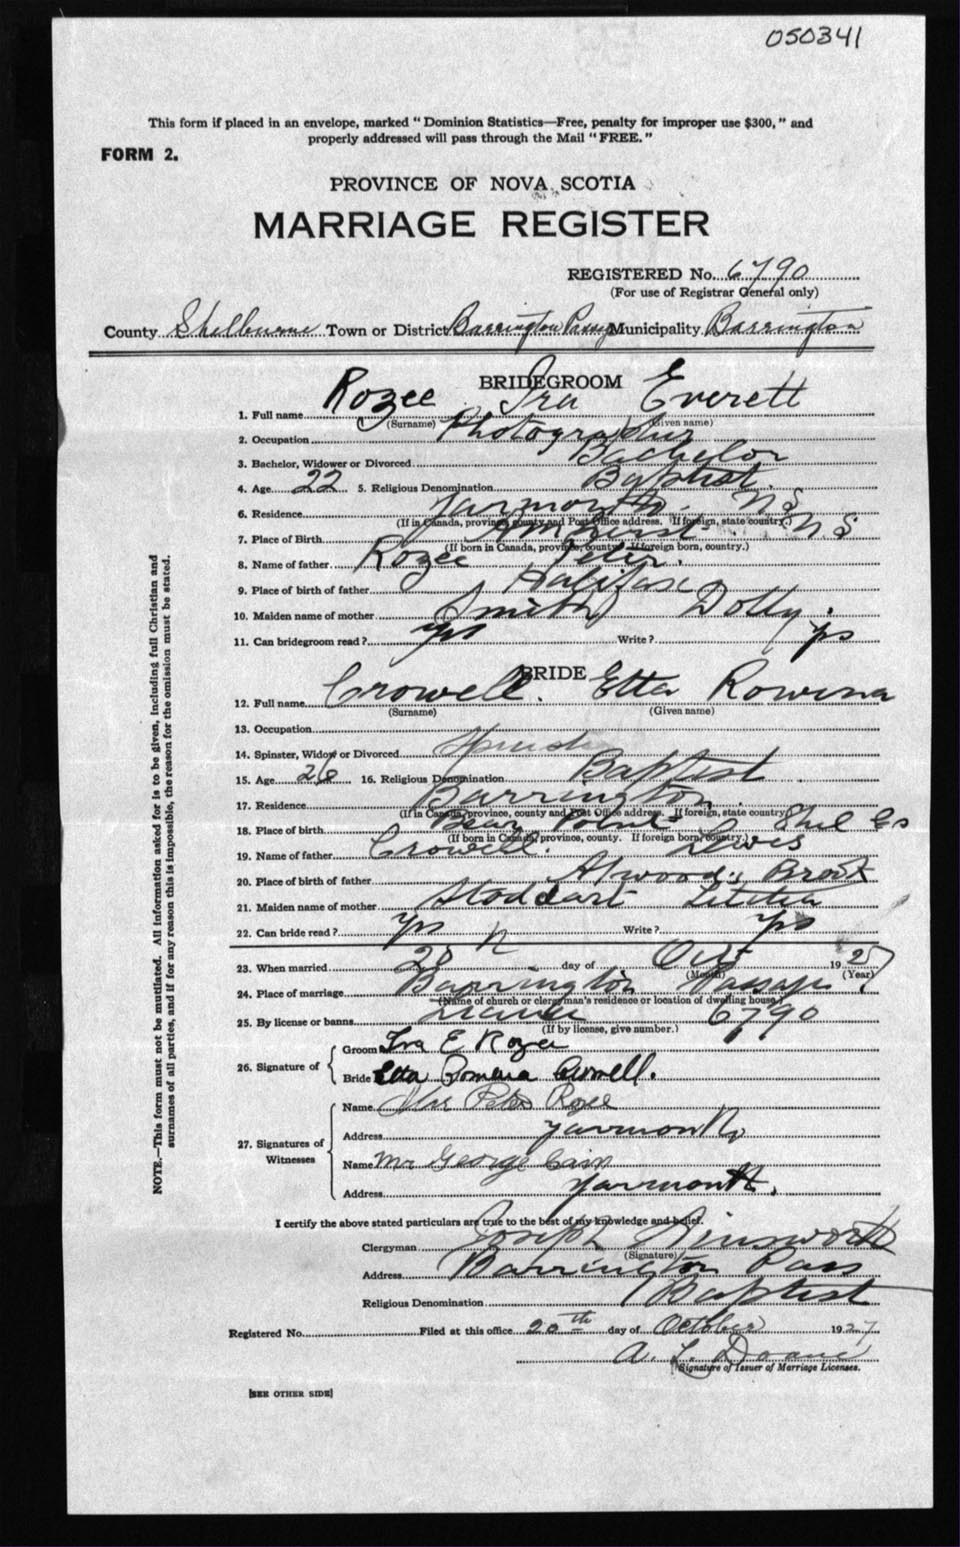 050341
This form if placed in an envelope, marked "Dominion Statistics—Free, penalty for improper use $300," and
properly addressed will pass through the Mail "FREE."
FORM 2.
PROVINCE OF NOVA SCOTIA
MARRIAGE REGISTER
REGISTERED No. 6790
(For use of Registrar General only)
County Shelburne Town or District Barrington Passage Municipality Barrington
BRIDEGROOM
1. Full name Rozee Ira Everett
(Surname) (Given name)
2. Occupation Photographer
3. Bachelor, Widower or Divorced Bachelor
4. Age 22 5. Religious Denomination Baptist.
6. Residence Yarmouth N S
(If in Canada, province, county and Post Office address. If foreign, state country.)
7. Place of Birth Amherst N S
(If born in Canada, province, county. If foreign born, country.)
8. Name of father Rozee Peter.
9. Place of birth of father Halifax
10. Maiden name of mother Smith Dolly.
11. Can bridegroom read? yes Write? yes
BRIDE
12. Full name Crowell. Etta Rowena
(Surname) (Given name)
13. Occupation
14. Spinster, Widow or Divorced Spinster
15. Age 26 16. Religious Denomination Baptist.
17. Residence Barrington
(If in Canada, province, county and Post Office address. If foreign, state country.)
18. Place of birth Bear Point Shel Co
(If born in Canada, province, county. If foreign born, country.)
19. Name of father Crowell. Lewis
20. Place of birth of father Atwoods Brook
21. Maiden name of mother Stoddart Letitia
22. Can bride read? yes Write? yes
23. When married 20 day of Oct 1927
(Month) (Year)
24. Place of marriage Barrington Passage
(Name of church or clergyman's residence or location of dwelling house.)
25. By license or banns License 6790
(If by license, give number.)
26. Signature of
Groom Ira E Rozee
Bride Etta Rowena Crowell.
27. Signatures of
Witnesses
Name Mrs Peter Rozee
Address Yarmouth
Name Mr George Cain
Address Yarmouth.
I certify the above stated particulars are true to the best of my knowledge and belief.
Clergyman Joseph Ainsworth
(Signature)
Address Barrington Pass
Religious Denomination Baptist
Registered No. Filed at this office 20th day of October 1927
A. L. Doane
Signature of Issuer of Marriage Licenses.
[SEE OTHER SIDE]
NOTE.—This form must not be mutilated. All information asked for is to be given, including full Christian and
surnames of all parties, and if for any reason this is impossible, the reason for the omission must be stated.